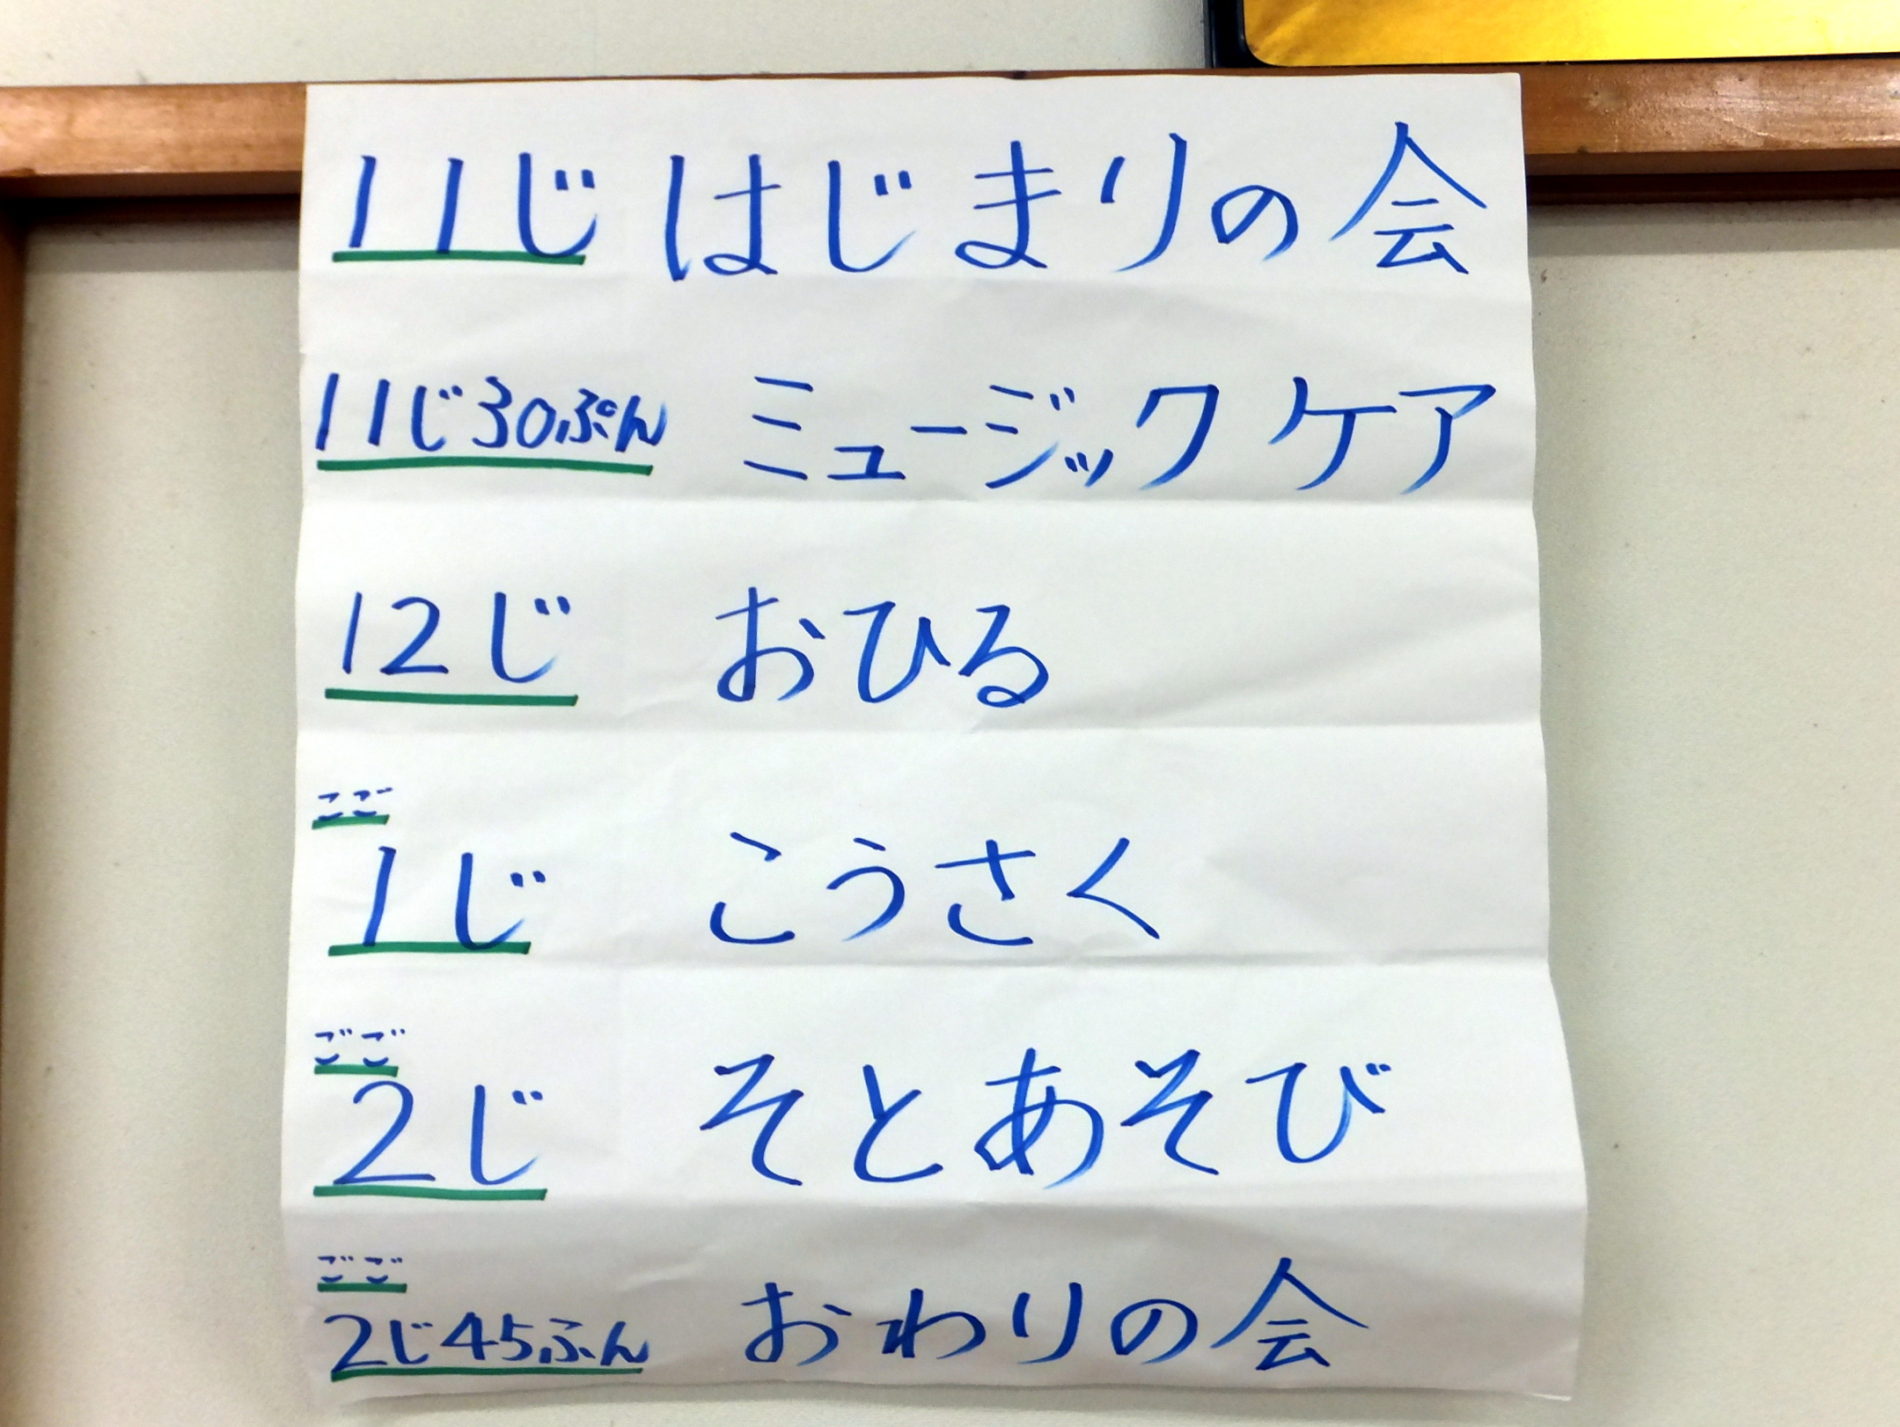 11じ はじまりの会
11じ30ぷん ミュージックケア
12じ おひる
ごご
1じ こうさく
ごご
2じ そとあそび
ごご
2じ45ふん おわりの会